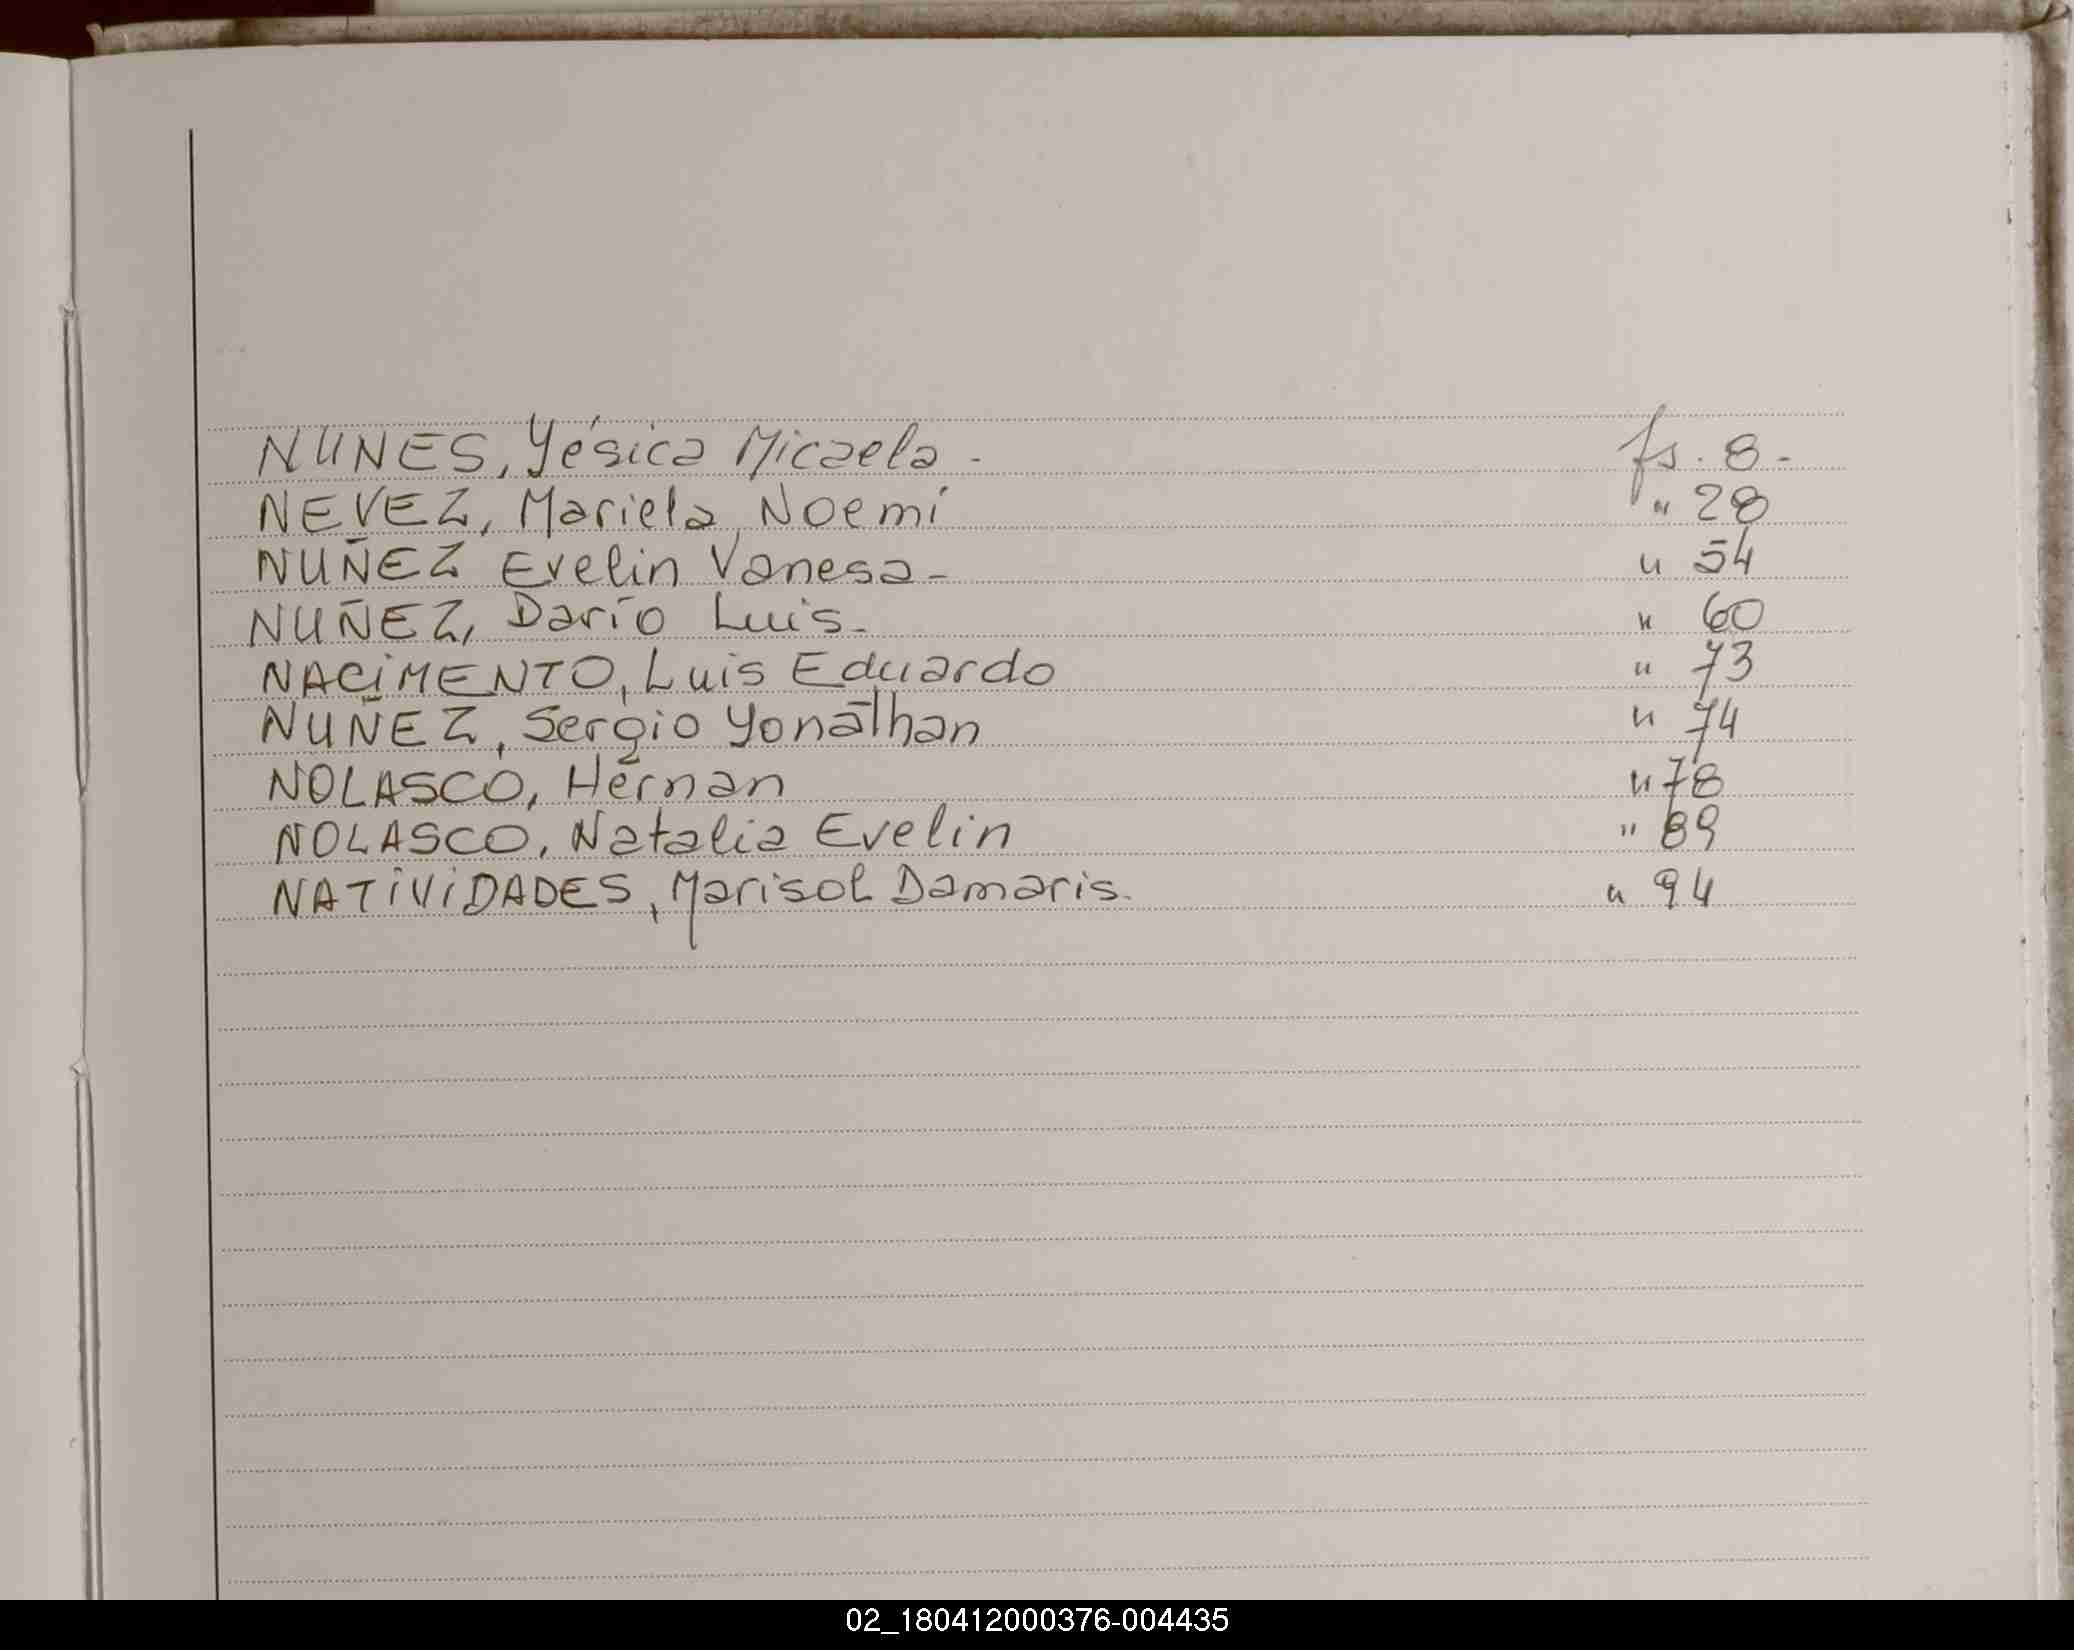 NUNES, Yésica Micaela - fs. 8 -
NEVEZ, Mariela Noemí " 28
NUÑEZ Evelin Vanesa - " 54
NUÑEZ, Darío Luis - " 60
NACIMENTO, Luis Eduardo " 73
NUÑEZ, Sergio Yonathan " 74
NOLASCO, Hernan " 78
NOLASCO, Natalia Evelin " 89
NATIVIDADES, Marisol Damaris. " 94
02_180412000376-004435